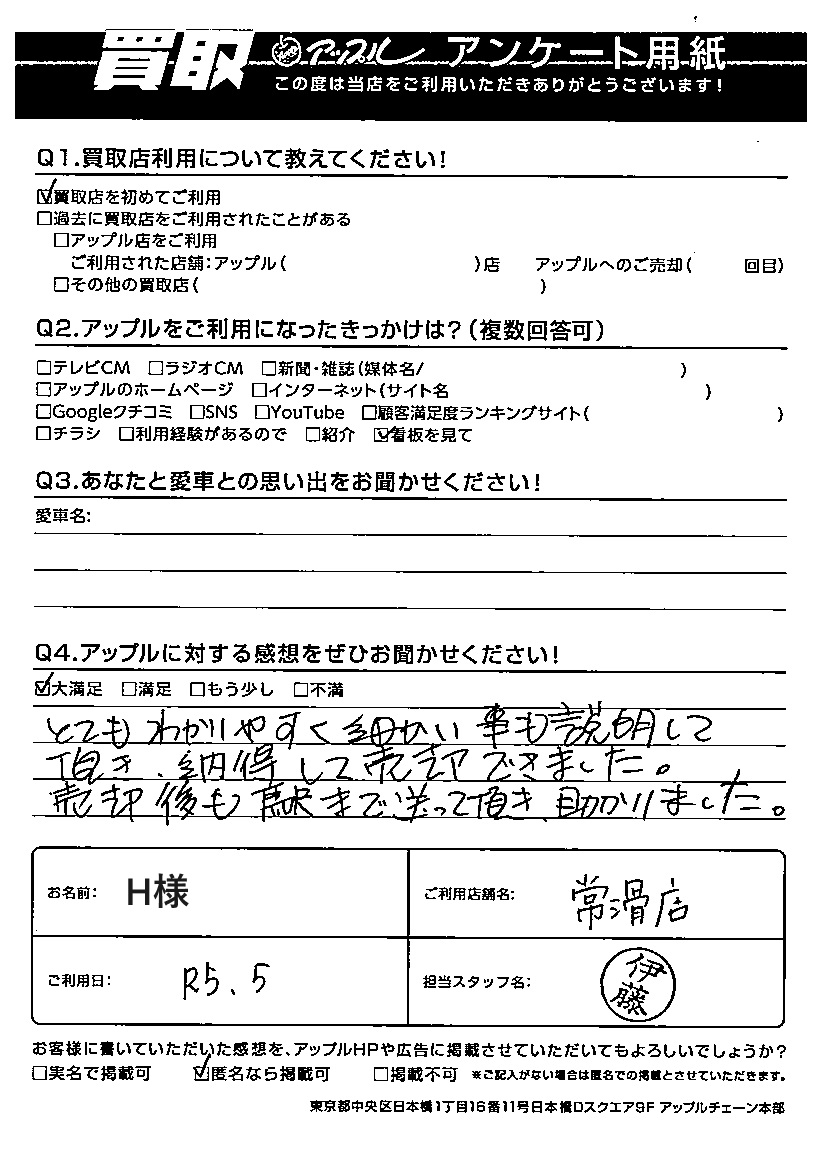 買取 アップル アンケート用紙
この度は当店をご利用いただきありがとうございます!
Q1.買取店利用について教えてください!
☑買取店を初めてご利用
□過去に買取店をご利用されたことがある
□アップル店をご利用
ご利用された店舗:アップル( )店 アップルへのご売却( 回目)
□その他の買取店( )
Q2.アップルをご利用になったきっかけは?(複数回答可)
□テレビCM □ラジオCM □新聞・雑誌(媒体名/ )
□アップルのホームページ □インターネット(サイト名 )
□Googleクチコミ □SNS □YouTube □顧客満足度ランキングサイト( )
□チラシ □利用経験があるので □紹介 ☑看板を見て
Q3.あなたと愛車との思い出をお聞かせください!
愛車名:
Q4.アップルに対する感想をぜひお聞かせください!
☑大満足 □満足 □もう少し □不満
とてもわかりやすく細かい事も説明して
頂き、納得して売却できました。
売却後も駅まで送って頂き、助かりました。
お名前: H様 ご利用店舗名: 常滑店
ご利用日: R5.5 担当スタッフ名: 伊藤
お客様に書いていただいた感想を、アップルHPや広告に掲載させていただいてもよろしいでしょうか?
□実名で掲載可 ☑匿名なら掲載可 □掲載不可 ※ご記入がない場合は匿名での掲載とさせていただきます。
東京都中央区日本橋1丁目16番11号日本橋Dスクエア9F アップルチェーン本部